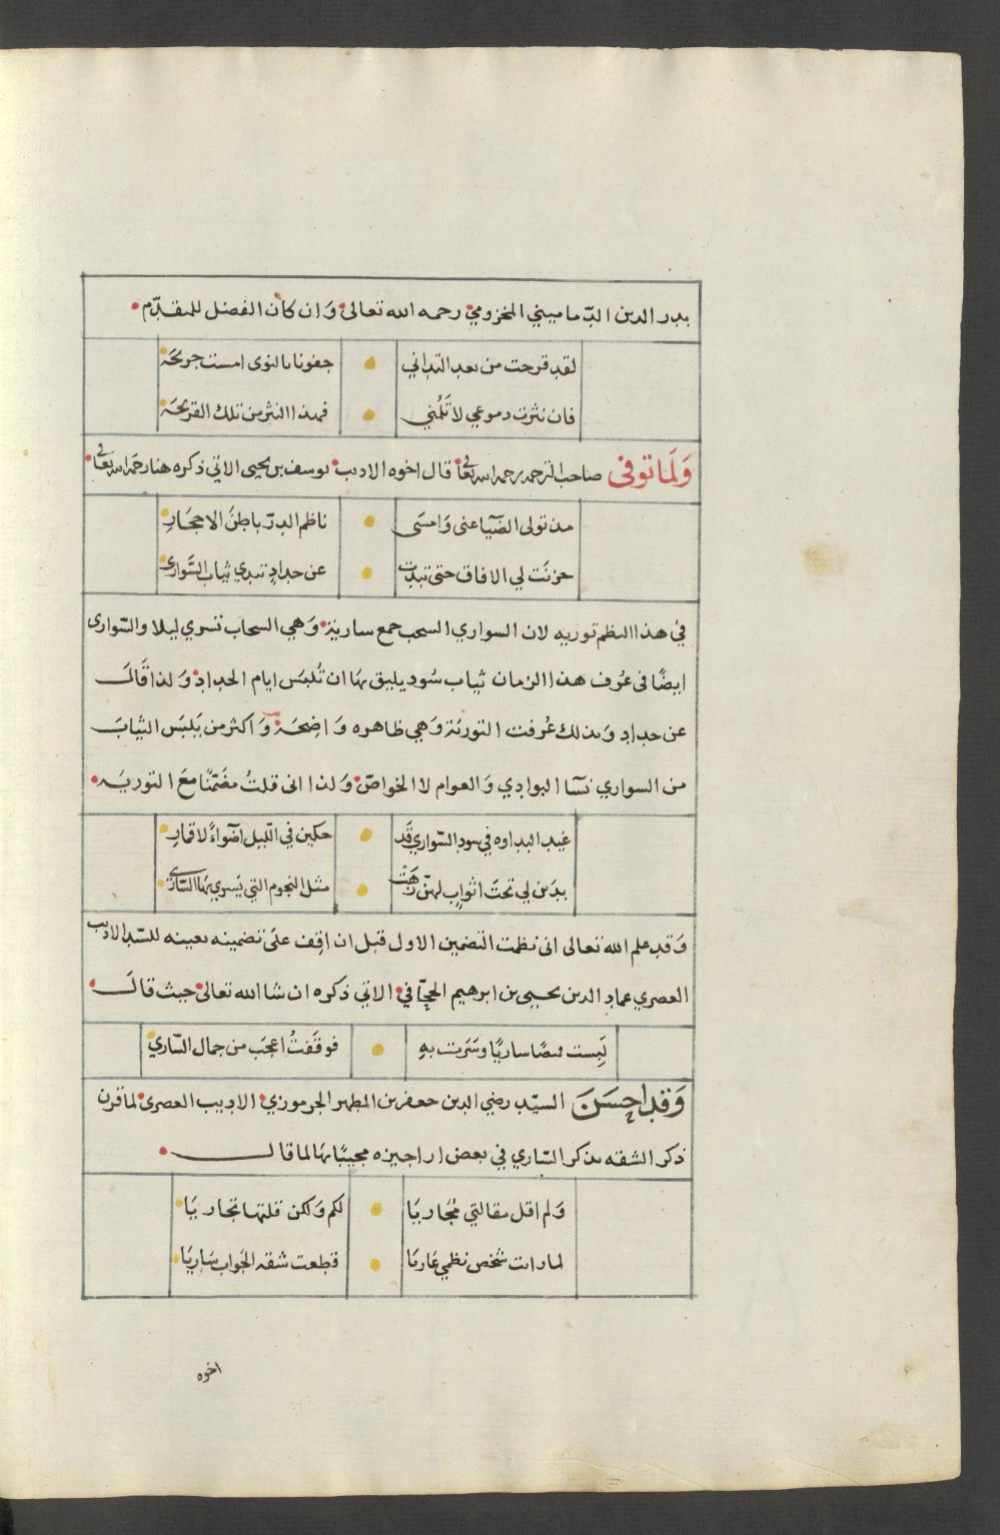 بدر الدين الدّماميني المخزومي رحمه الله تعالى وَان كان الفضل للمقدّم
لقد قرحت من بعد التداني جفونا بالنوى امست جريحَة
فان نثرت دموعي لا تَلُمني فهذا النثر من تلك القريحَة
وَلَما توفى صاحب الترجمه رحمه الله تعالى قال اخوه الاديب يوسف بن يحيى الاتي ذكره هنا رحمه الله تعالى
مذ تولى الضيا عنى وَامسَى ناظم الدرّ باطنَ الاحجَارِ
حزنَت لي الافاق حتى تبدت عن حدادٍ تبدي ثياب السَّوارى
في هذا النظم توريه لان السواري السحب جمع سارية وَهي السحاب تسري ليلا والسّوارى
ايضًا فى عُرف هذا الزمان ثياب سُود يليق بهَا ان تُلبَس ايام الحداد وَلذا قَالَ
عن حدادٍ وَبذلك عُرفت التورية وَهي ظاهره وَاضِحَة وَاكثر من يَلبَس الثيابَ
من السواري نسَآ البوادي وَالعوام لا الخواصّ وَلذا انى قلتُ مضَمّنًا معَ التوريَه
غيد البداوه في سود السّواري قَد حكين في اللّيل اضوآءً لاقمارِ
بدَين لي تحتَ اثوابٍ لهنّ زهَتْ مثل النجوم التي يَسري بهَا السَّارى
وَقد علم الله تعالى انى نظمت التضمين الاول قبل ان اقِف علَى تضمينه بعينه للسّيّد الاديب
العصري عماد الدين يحيى بن ابرهيم الحجّافي الاتي ذكره ان شا الله تعالى حيث قالَ
لَبِست قمصًا ساريًا وسَرَت بهِ فوقَفتُ اعجَب من جمال السّاري
وَقَد احسَنَ السيّد رضي الدين جعفر بن المطهر الجرموزي الاديب العصرى لما قرن
ذكر الشقه بذكر السّاري في بعض اراجيزه مجيبًا بهَا لما قال
وَلم اقل مقالتي مُجَاريَا لكم وَلكن قلتها تجاريَا
لما رات شخص نظمي عَاريَا قطعت شقه الجَواب سَاريَا
اخوه